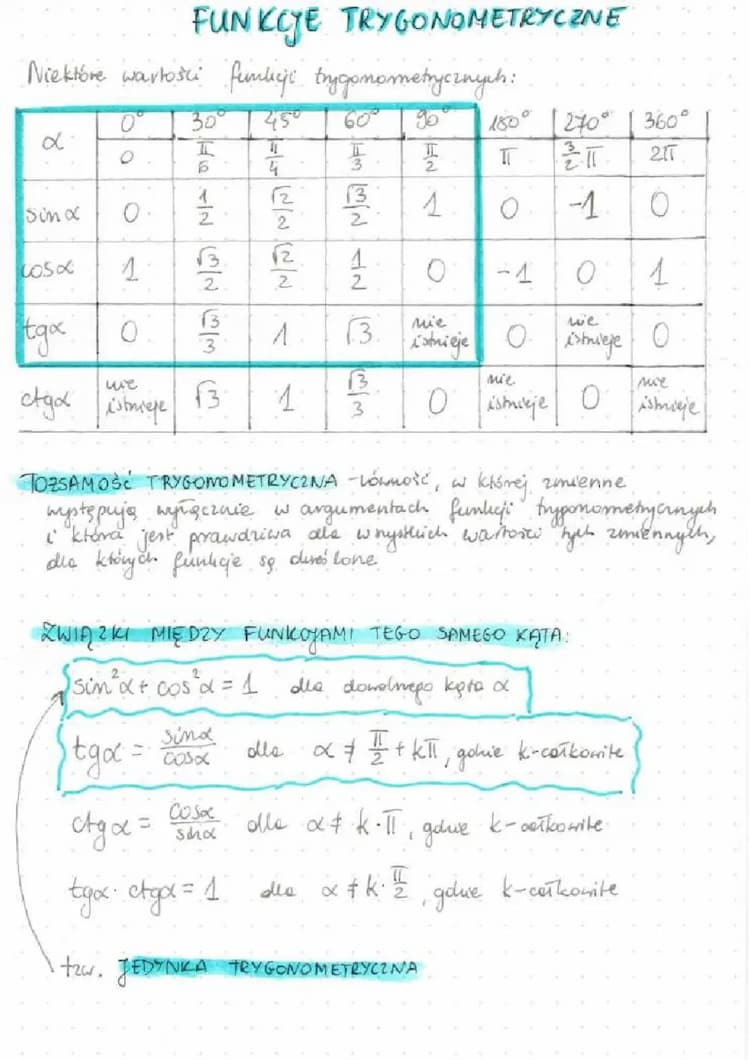 FUNKCJE TRYGONOMETRYCZNE
Niektóre wartości funkcji trygonometrycznych:
α 0° 30° 45° 60° 90° 180° 270° 360°
0 π/6 π/4 π/3 π/2 π 3/2·π 2π
sinα 0 1/2 √2/2 √3/2 1 0 -1 0
cosα 1 √3/2 √2/2 1/2 0 -1 0 1
tgα 0 √3/3 1 √3 nie istnieje 0 nie istnieje 0
ctgα nie istnieje √3 1 √3/3 0 nie istnieje 0 nie istnieje
TOŻSAMOŚĆ TRYGONOMETRYCZNA - równość, w której zmienne
występują wyłącznie w argumentach funkcji trygonometrycznych
i która jest prawdziwa dla wszystkich wartości tych zmiennych,
dla których funkcje są określone
ZWIĄZKI MIĘDZY FUNKCJAMI TEGO SAMEGO KĄTA:
sin²α + cos²α = 1 dla dowolnego kąta α
tgα = sinα/cosα dla α ≠ π/2 + kπ, gdzie k-całkowite
ctgα = cosα/sinα dla α ≠ k·π, gdzie k-całkowite
tgα · ctgα = 1 dla α ≠ k·π/2, gdzie k-całkowite
tzw. JEDYNKA TRYGONOMETRYCZNA